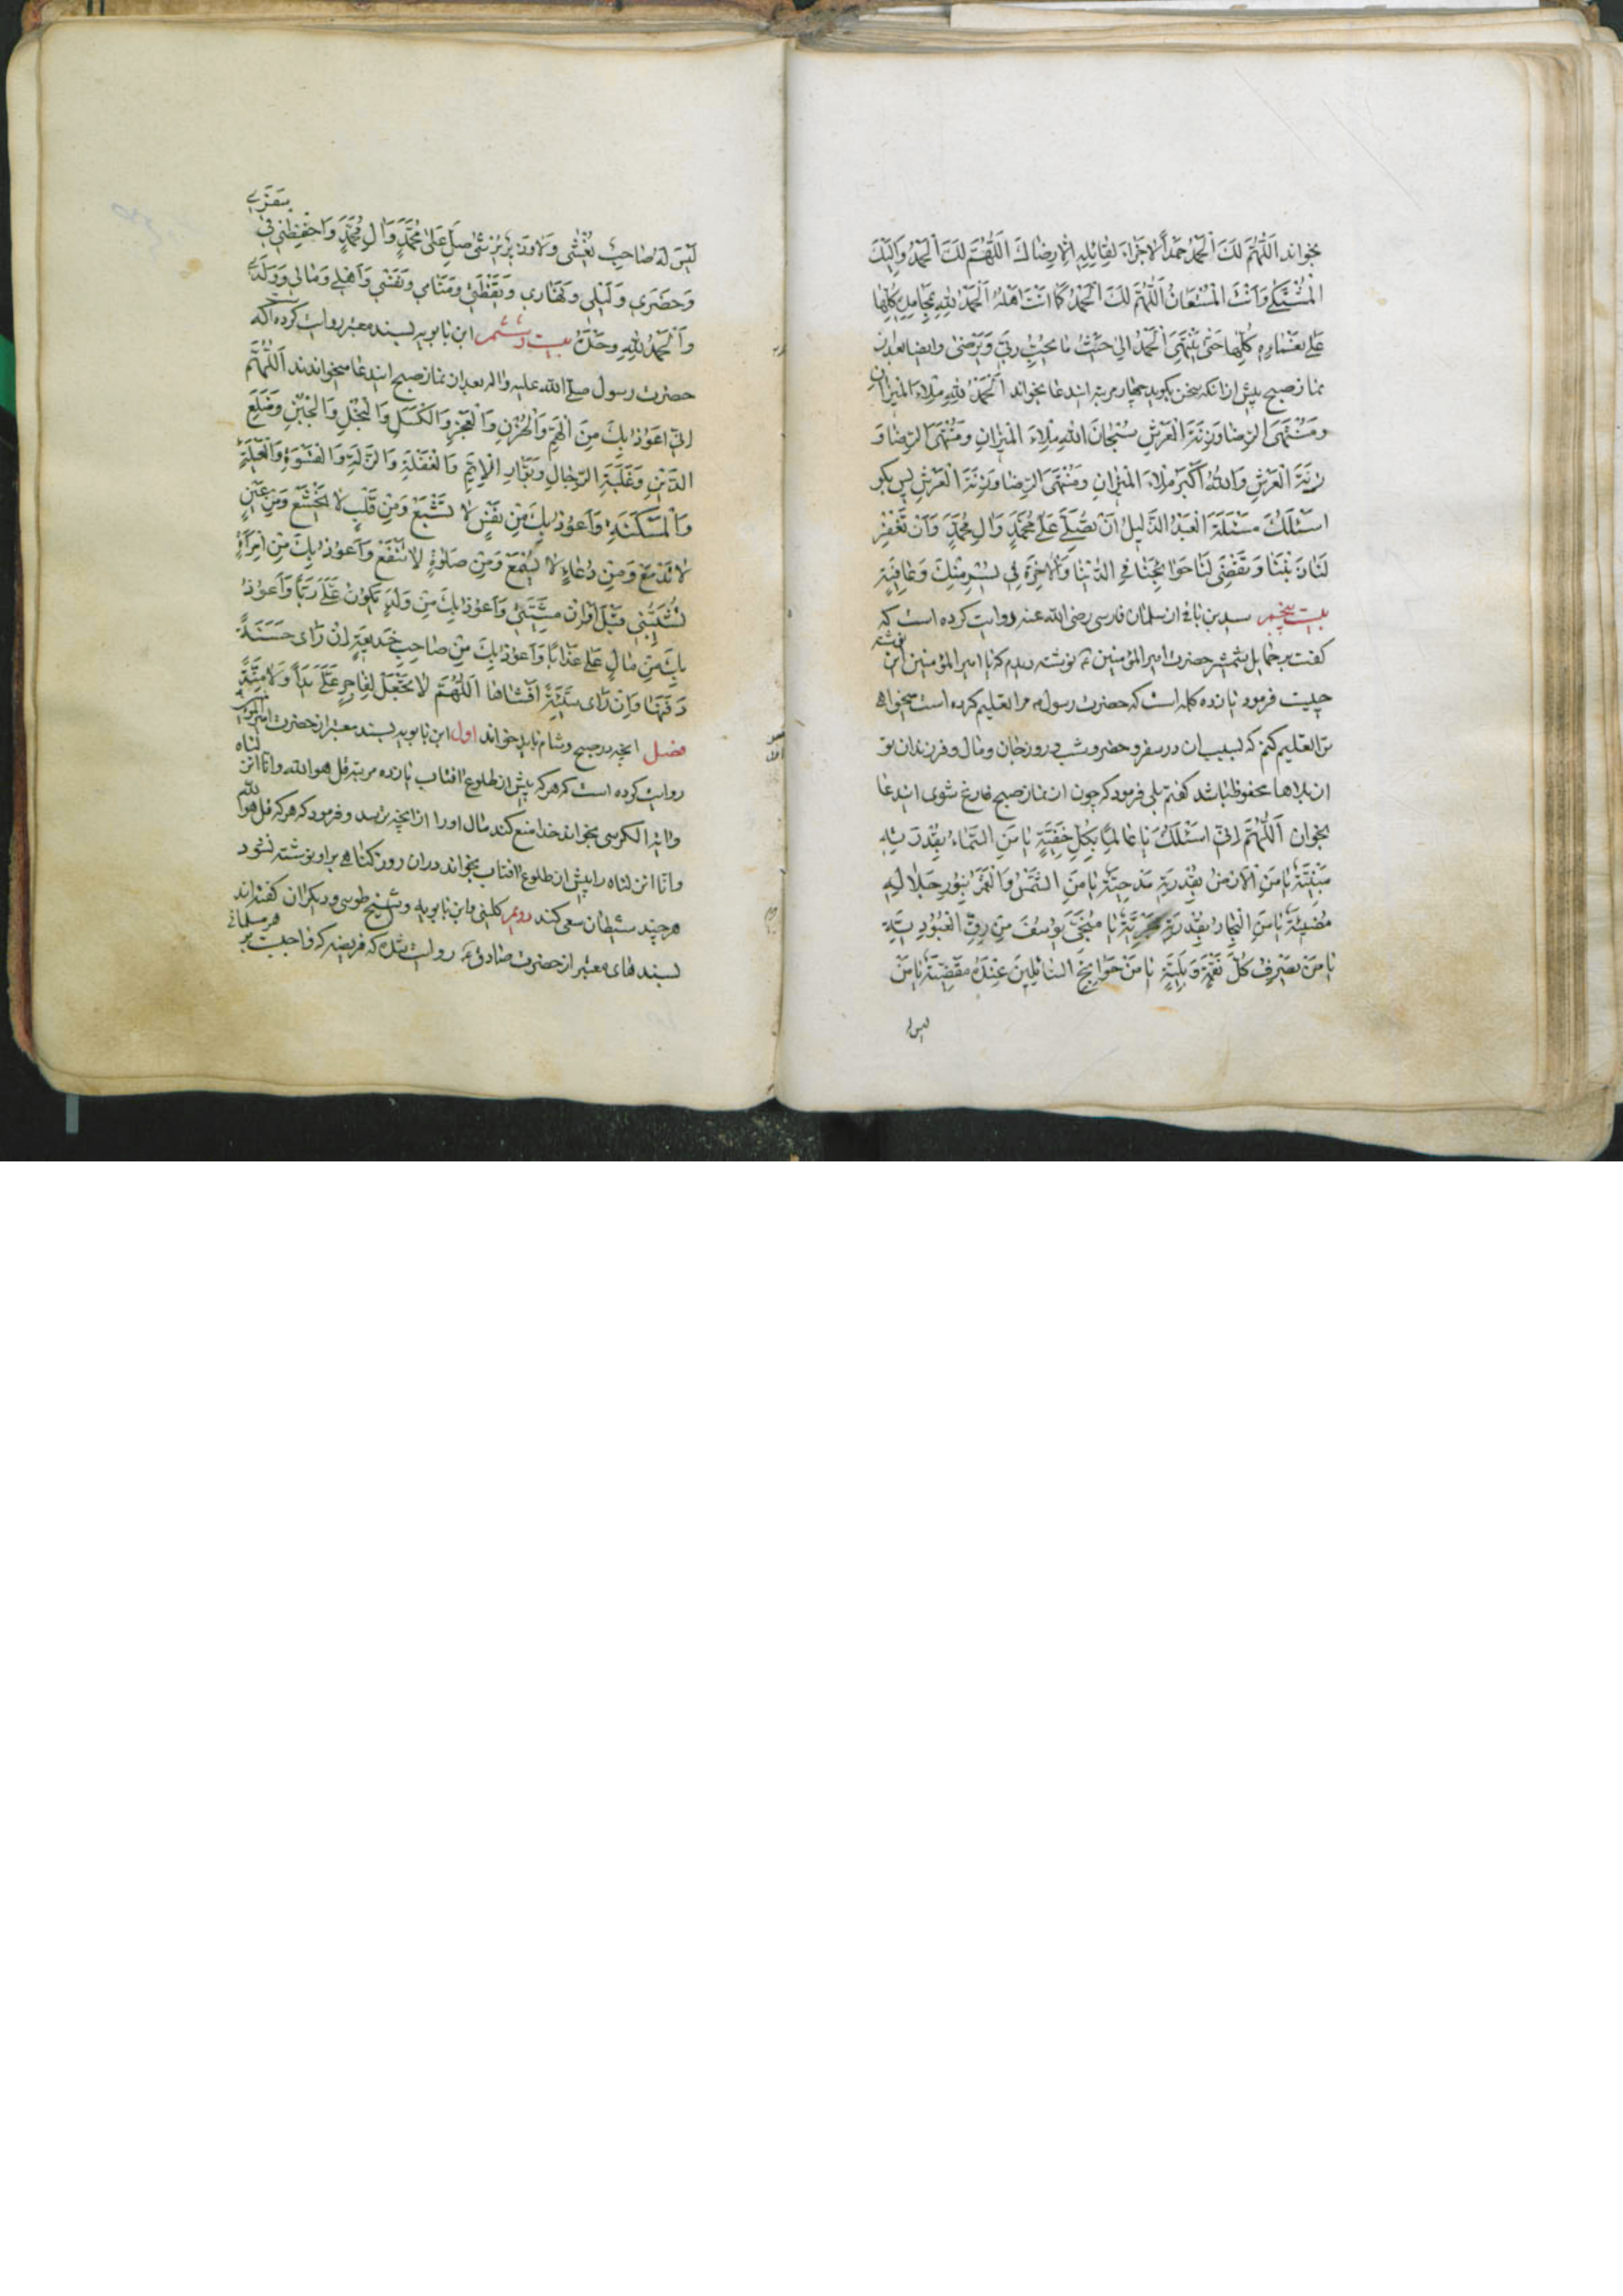 بخواند اَللّٰهُمَّ لَكَ الْحَمْدُ حَمْدًا لا جَزاءَ لِقائِلِهِ اِلّا رِضاكَ اَللّٰهُمَّ لَكَ الْحَمْدُ وَاِلَيْكَ
الْمُشْتَكىٰ وَاَنْتَ الْمُسْتَعانُ اَللّٰهُمَّ لَكَ الْحَمْدُ كَما اَنْتَ اَهْلُهُ اَلْحَمْدُ لِلّٰهِ بِمَحامِدِهِ كُلِّها
عَلىٰ نَعْمائِهِ كُلِّها حَتّىٰ يَنْتَهِيَ الْحَمْدُ اِلىٰ حَيْثُ ما يُحِبُّ رَبّي وَيَرْضىٰ وايضا بعد از
نماز صبح پیش از انکه سخن بکوید چهار مرتبه ایندعا بخواند اَلْحَمْدُ لِلّٰهِ مِلْاءَ الْميزانِ
وَمُنْتَهَى الرِّضا وَزِنَةَ الْعَرْشِ سُبْحانَ اللّٰهِ مِلْاءَ الْميزانِ وَمُنْتَهَى الرِّضا وَ
زِنَةَ الْعَرْشِ وَاللّٰهُ اَكْبَرُ مِلْاءَ الْميزانِ وَمُنْتَهَى الرِّضا وَزِنَةَ الْعَرْشِ پس بکو
اَسْئَلُكَ مَسْئَلَةَ الْعَبْدِ الذَّليلِ اَنْ تُصَلِّيَ عَلىٰ مُحَمَّدٍ وَالِ مُحَمَّدٍ وَاَنْ تَغْفِرَ
لَنا ذُنُوبَنا وَتَقْضِيَ لَنا حَوائِجَنا فِي الدُّنْيا وَالْاخِرَةِ في يُسْرٍ مِنْكَ وَعافِيَةٍ
بیست پنجم سید بن باقی از سلمان فارسی رضی الله عنه روایت کرده است که
کفت بر حمایل شمشیر حضرت امیر المؤمنین ع نوشته دیدم که یا امیر المؤمنین این نوشته
چیست فرمود یازده کلمه است که حضرت رسول ص مرا تعلیم کرده است میخواهی
ترا تعلیم کنم که بسبب ان در سفر و حضر و شب و روز جان و مال و فرزندان تو
از بلاها محفوظ باشد کفتم بلی فرمود که چون از نماز صبح فارغ شوی ایندعا
بخوان اَللّٰهُمَّ اِنّي اَسْئَلُكَ يا عالِمًا بِكُلِّ خَفِيَّةٍ يا مَنِ السَّماءُ بِقُدْرَتِهِ
مَبْنِيَّةٌ يا مَنِ الْاَرْضُ بِقُدْرَتِهِ مَدْحِيَّةٌ يا مَنِ الشَّمْسُ وَالْقَمَرُ بِنُورِ جَلالِهِ
مُضيئَةٌ يا مَنِ الْبِحارُ بِقُدْرَتِهِ مَجْرِيَّةٌ يا مُنْجِيَ يُوسُفَ مِنْ رِقِّ الْعُبُودِيَّةِ
يا مَنْ يَصْرِفُ كُلَّ نَقِمَةٍ وَبَلِيَّةٍ يا مَنْ حَوائِجُ السّائِلينَ عِنْدَهُ مَقْضِيَّةٌ يا مَنْ
لیس له
لَيْسَ لَهُ صاحِبٌ يُغْشىٰ وَلا وَزيرٌ يُرْشىٰ صَلِّ عَلىٰ مُحَمَّدٍ وَالِ مُحَمَّدٍ وَاحْفَظْني في سَفَري
وَحَضَري وَلَيْلي وَنَهاري وَيَقَظَتي وَمَنامي وَنَفْسي وَاَهْلي وَمالي وَوَلَدي
وَالْحَمْدُ لِلّٰهِ وَحْدَهُ بیست و ششم ابن بابویه بسند معتبر روایت کرده است که
حضرت رسول صلّى الله علیه واله بعد از نماز صبح ایندعا میخواندند اَللّٰهُمَّ
اِنّي اَعُوذُ بِكَ مِنَ الْهَمِّ وَالْحُزْنِ وَالْعَجْزِ وَالْكَسَلِ وَالْبُخْلِ وَالْجُبْنِ وَضَلَعِ
الدَّيْنِ وَغَلَبَةِ الرِّجالِ وَبَوارِ الْاَيِّمِ وَالْغَفْلَةِ وَالزَّلَّةِ وَالْقَسْوَةِ وَالْعَيْلَةِ
وَالْمَسْكَنَةِ وَاَعُوذُ بِكَ مِنْ نَفْسٍ لا تَشْبَعُ وَمِنْ قَلْبٍ لا يَخْشَعُ وَمِنْ عَيْنٍ
لا تَدْمَعُ وَمِنْ دُعاءٍ لا يُسْمَعُ وَمِنْ صَلوٰةٍ لا تَنْفَعُ وَاَعُوذُ بِكَ مِنِ امْرَاَةٍ
تُشَيِّبُني قَبْلَ اَوانِ مَشيبي وَاَعُوذُ بِكَ مِنْ وَلَدٍ يَكُونُ عَلَيَّ رَبًّا وَاَعُوذُ
بِكَ مِنْ مالٍ يَكُونُ عَلَيَّ عَذابًا وَاَعُوذُ بِكَ مِنْ صاحِبِ خَديعَةٍ اِنْ رَاىٰ حَسَنَةً
دَفَنَها وَاِنْ رَاىٰ سَيِّئَةً اَفْشاها اَللّٰهُمَّ لا تَجْعَلْ لِفاجِرٍ عَلَيَّ يَدًا وَلا مِنَّةً
فصل انچه در صبح و شام باید خواند اول ابن بابویه بسند معتبر از حضرت امیر المؤمنین
روایت کرده است که هر که پیش از طلوع افتاب یازده مرتبه قل هو الله وانا انزلناه
وایة الکرسی بخواند خدا منع کند مال او را از انچه ترسد و فرمود که هر که قل هو الله
وانا انزلناه را پیش از طلوع افتاب بخواند در ان روز کناهی بر او نوشته نشود
هر چند شیطان سعی کند دویم کلینی و ابن بابویه و شیخ طوسی و دیکران کفته اند
بسندهای معتبر از حضرت صادق ع روایت شده که فریضه که واجبست بر هر مسلمانی